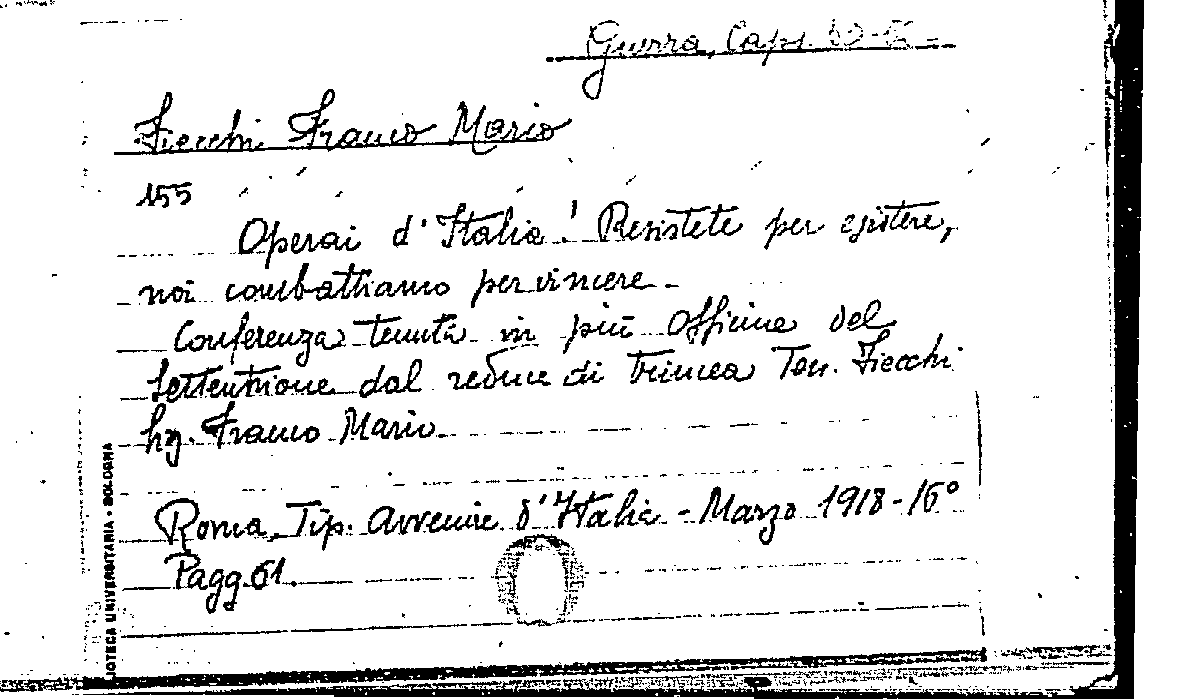 Guerra, Caps.
Fiecchi Franco Mario
155
Operai d'Italia! Resistete per esistere,
noi combattiamo per vincere.
Conferenza tenuta in più Officine del
Settentrione dal reduce di trincea Ten. Fiecchi
Ing. Franco Mario.
Roma, Tip. Avvenire d'Italia - Marzo 1918 - 16°
Pagg. 61.
IOTECA UNIVERSITARIA • BOLOGNA